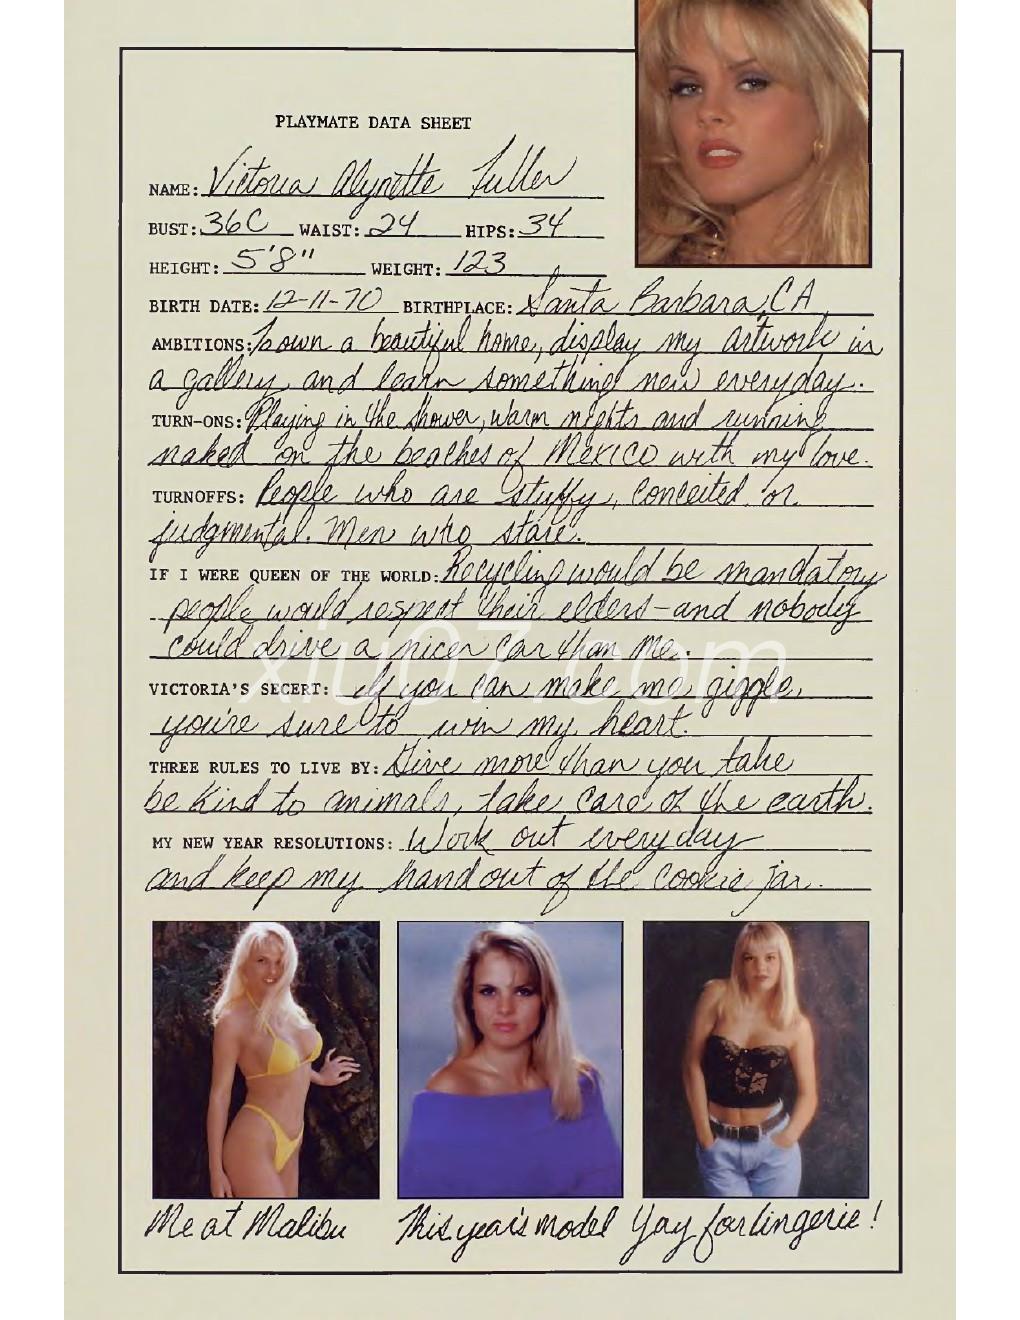 PLAYMATE DATA SHEET
NAME: Victoria Alynette Fuller
BUST: 36C WAIST: 24 HIPS: 34
HEIGHT: 5'8" WEIGHT: 123
BIRTH DATE: 12-11-70 BIRTHPLACE: Santa Barbara, CA
AMBITIONS: To own a beautiful home, display my artwork in
a gallery and learn something new everyday.
TURN-ONS: Playing in the shower, warm nights and running
naked on the beaches of MEXICO with my love.
TURNOFFS: People who are stuffy, conceited or
judgmental. Men who stare.
IF I WERE QUEEN OF THE WORLD: Recycling would be mandatory
people would respect their elders - and nobody
could drive a nicer car than me.
xiu07.com
VICTORIA'S SECERT: If you can make me giggle,
you're sure to win my heart.
THREE RULES TO LIVE BY: Give more than you take
be kind to animals, take care of the earth.
MY NEW YEAR RESOLUTIONS: Work out everyday
and keep my hand out of the cookie jar.
Me at Malibu This year's model Yay for lingerie!